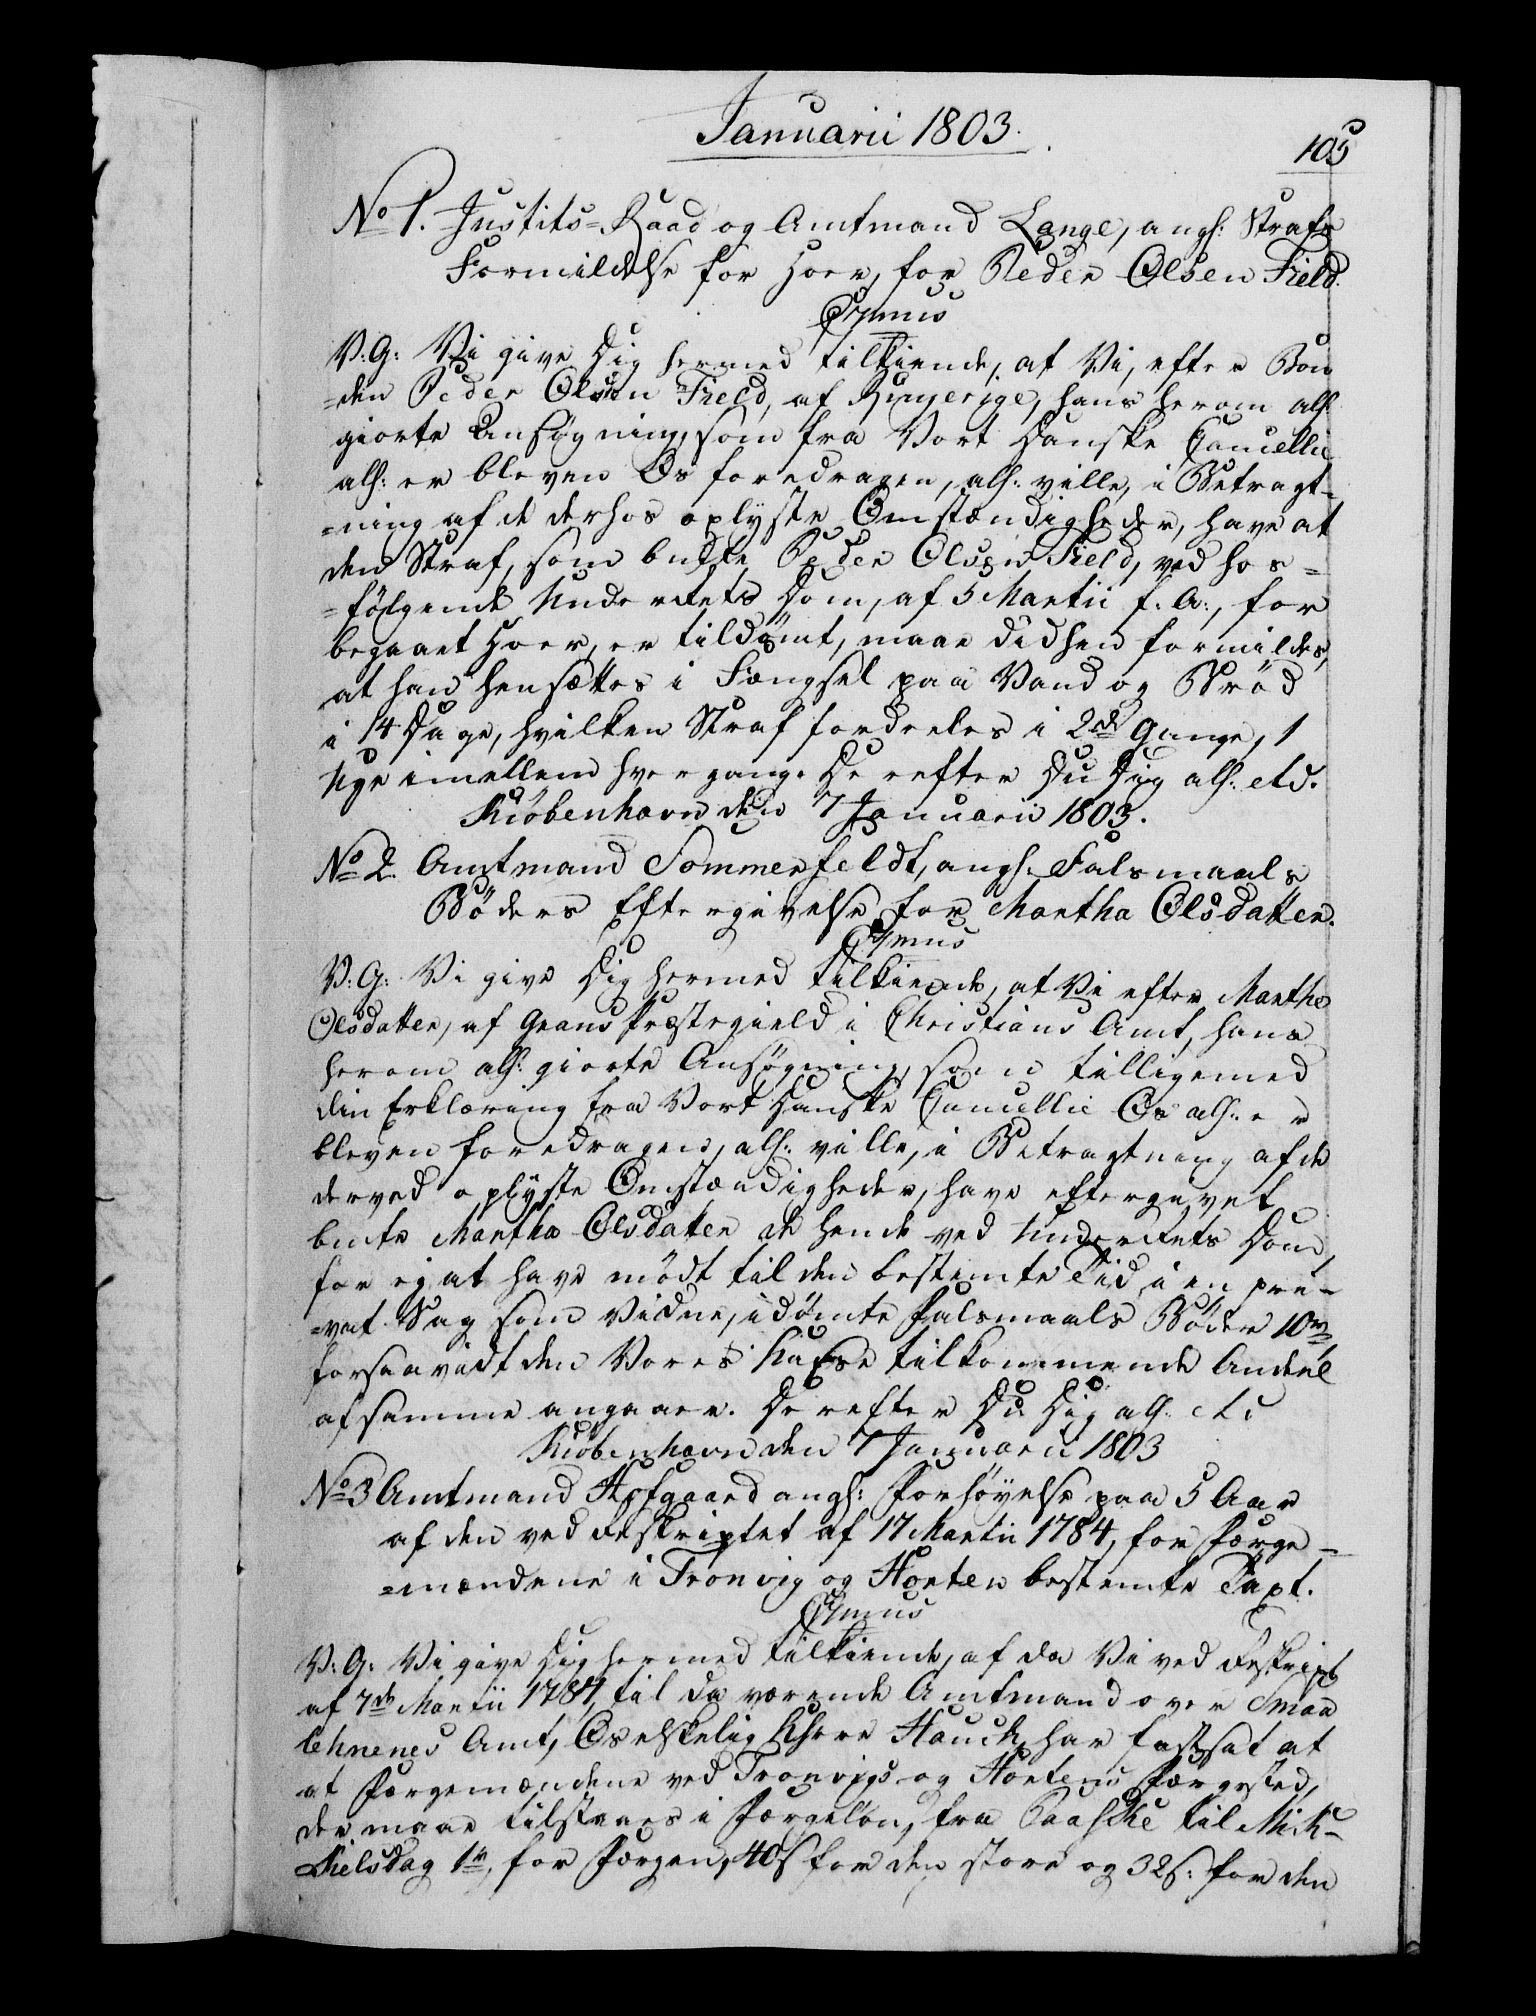 Januarii 1803.
105
No 1. Justits-Raad og Amtmand Lange, angl: Strafs
Formildelse for Hoer, for Peder Olsen Field.
C7mus
V: G: Vi give Dig hermed tilkiende, at Vi, efter Bon
=den Peder Olsen Field, af Ringerige, hans herom all:
giorte Ansøgning, som fra Vort Danske Cancellie
all: er bleven Os foredragen, all: ville, i Betragt=
=ning af de derhos oplyste Omstændigheder, have at
den Straf, som bemte Peder Olsen Field, ved hos=
=følgende Underrets Dom, af 5 Martii f: A:, for
begaaet Hoer, er tildømt, maae didhen formildes,
at han hensættes i Fængsel paa Vand og Brød
i 14 Dage, hvilken Straf fordeeles i 2de Gange, 1
Uge imellem hver gang. Derefter Du Dig all: etc.
Kiøbenhavn den 7 Januarii 1803.
No 2. Amtmand Sommerfeldt, angl. Falsmaals
Bøders Eftergivelse for Martha Olsdatter.
C7mus
V: G: Vi give Dig hermed tilkiende, at Vi efter Martha
Olsdatter, af Grans Præstegield i Christians Amt, hans
herom all: giorte Ansøgning, som tilligemed
din Erklæring fra Vort Danske Cancellie Os all: er
bleven foredragen, all: ville, i Betragtning af de
derved oplyste Omstændigheder, have eftergivet
bemte Martha Olsdatter de hende ved Underrets Dom,
for ej at have mødt til den bestemte Tid i en pri-
=vat Sag som Vidne, idømte Falsmaals Bøder 10 rd,
forsaavidt den Vores Kasse tilkommende Andeel
af samme angaaer. Derefter Du Dig all. etc
Kiøbenhavn den 7 Januarii 1803
No 3 Amtmand Hofgaard angl: Forhøyelse paa 5 Aar
af den ved Reskriptet af 17 Martii 1784, for Færge=
=mændene i Tronvig og Horten bestemte Taxt.
C7mus
V: G: Vi give Dig hermed tilkiende, at da Vi ved Reskript
af 7de Martii 1784, til da værende Amtmand over Smaa
lehnenes Amt, Os elskelig Hr Hauch, har fastsat at
at Færgemændene ved Tronvigs og Hortens Færgested,
der maae tilstaaes i Færgeløn, fra Paaske til Mik-
kielsdag 1 rd, for Færgen, 40 s for den store og 32 s: for den